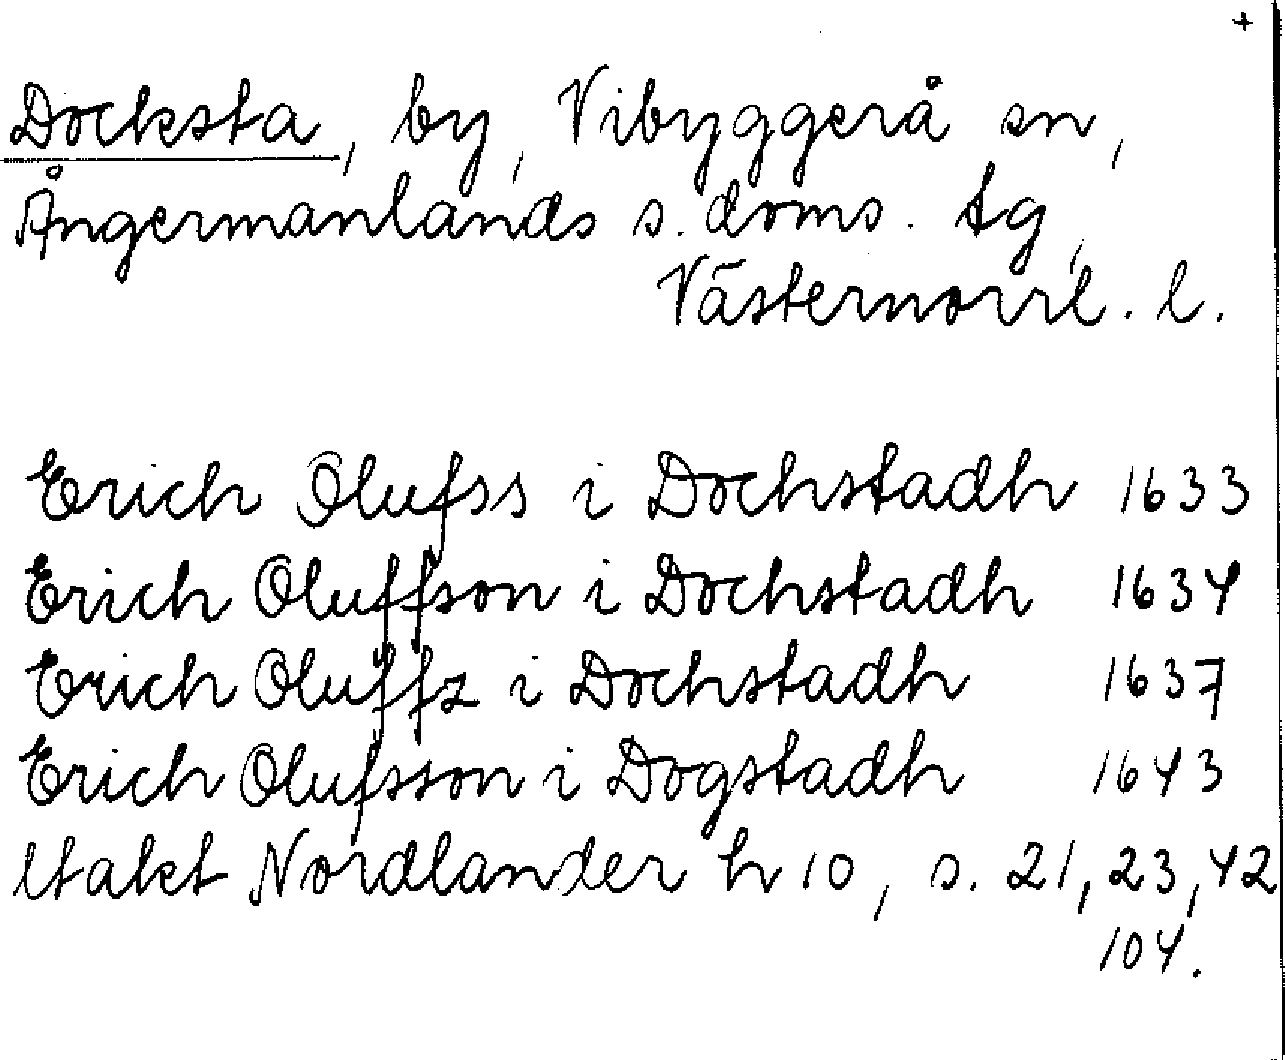 +
Docksta, by, Vibyggerå sn,
Ångermanlands s. doms. tg,
Västernorrl. l.
Erich Olufss i Dochstadh 1633
Erich Oluffson i Dochstadh 1634
Erich Oluffz i Dochstadh 1637
Erich Olufsson i Dogstadh 1643
Utakt Nordlander h 10, s. 21, 23, 42
104.